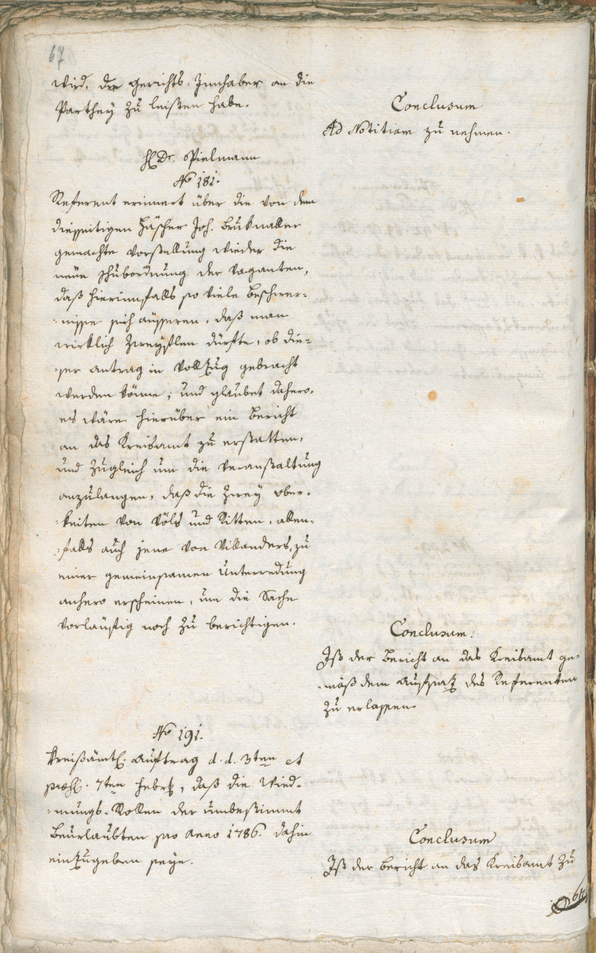 67
wird, der Gerichts Innhaber an die
Parthey zu leisten habe.
Conclusum
Ad Notitiam zu nehmen.
H. Dr. Spielmann
No 181.
Referent erinnert über die von dem
diesseitigen Häscher Joh.
gemachte Vorstellung wieder die
neüe Schubordnung der Vaganten,
daß hierinnfalls so viele Beschwer-
nisse sich äusseren, daß man
wirklich zweyflen dürfte, ob die-
ser Antrag in Vollzug gebracht
werden könne, und glaubet dahero,
es wäre hierüber ein Bericht
an das Kreisamt zu erstatten,
und zugleich um die Veranstaltung
anzulangen, daß die zwey ober-
keiten von Völs und Ritten, allen-
falls auch jene von Villanders, zu
einer gemeinsamen Unterredung
anhero erscheinen, um die Sache
vorläufig noch zu berichtigen.
Conclusum.
Ist der Bericht an das Kreisamt ge-
mäß dem Aufsatz des Referenten
zu erlassen.
No 191.
Kreisämtl. Auftrag d. d. 3ten et
praes. 7ten Febr., daß die Wied-
mungs-Rollen der unbestimmt
Beurlaubten pro Anno 1786. dahin
einzugeben seye.
Conclusum
Ist der Bericht an das Kreisamt zu